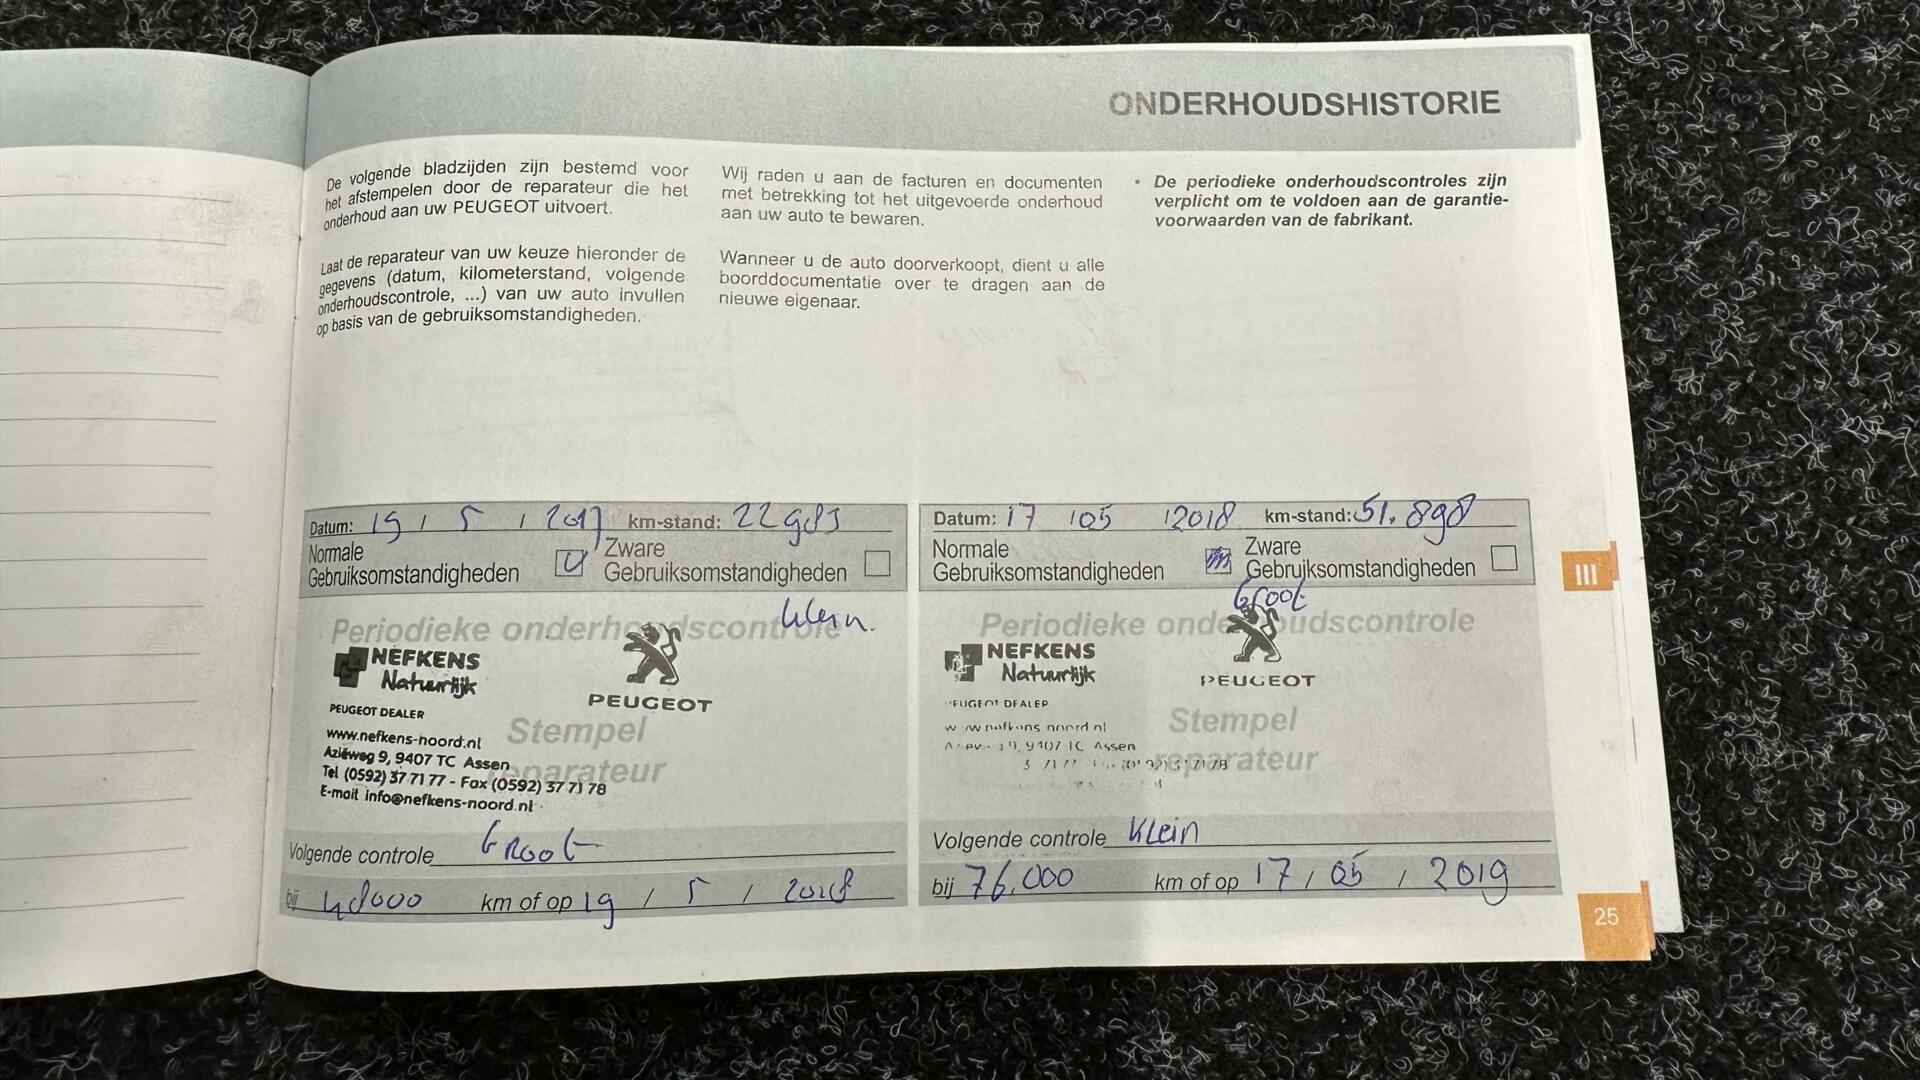 ONDERHOUDSHISTORIE
De volgende bladzijden zijn bestemd voor
het afstempelen door de reparateur die het
onderhoud aan uw PEUGEOT uitvoert.
Laat de reparateur van uw keuze hieronder de
gegevens (datum, kilometerstand, volgende
onderhoudscontrole, ...) van uw auto invullen
op basis van de gebruiksomstandigheden.
Wij raden u aan de facturen en documenten
met betrekking tot het uitgevoerde onderhoud
aan uw auto te bewaren.
Wanneer u de auto doorverkoopt, dient u alle
boorddocumentatie over te dragen aan de
nieuwe eigenaar.
• De periodieke onderhoudscontroles zijn
verplicht om te voldoen aan de garantie-
voorwaarden van de fabrikant.
Datum: 19 / 5 / 2017 km-stand:
Normale Zware
Gebruiksomstandigheden Gebruiksomstandigheden
Klein.
Periodieke onderhoudscontrole
NEFKENS
Natuurlijk
PEUGEOT
PEUGEOT DEALER
Stempel
reparateur
www.nefkens-noord.nl
Aziëweg 9, 9407 TC Assen
Tel (0592) 37 71 77 - Fax (0592) 37 71 78
E-mail info@nefkens-noord.nl
Volgende controle Groot
bij 48000 km of op 19 / 5 / 2018
Datum: 17 / 05 / 2018 km-stand: 51.898
Normale Zware
Gebruiksomstandigheden Gebruiksomstandigheden
Groot
Periodieke onderhoudscontrole
NEFKENS
Natuurlijk
PEUGEOT
PEUGEOT DEALER
Stempel
reparateur
www.nefkens-noord.nl
9, 9407 TC Assen
Volgende controle Klein
bij 76.000 km of op 17 / 05 / 2019
III
25